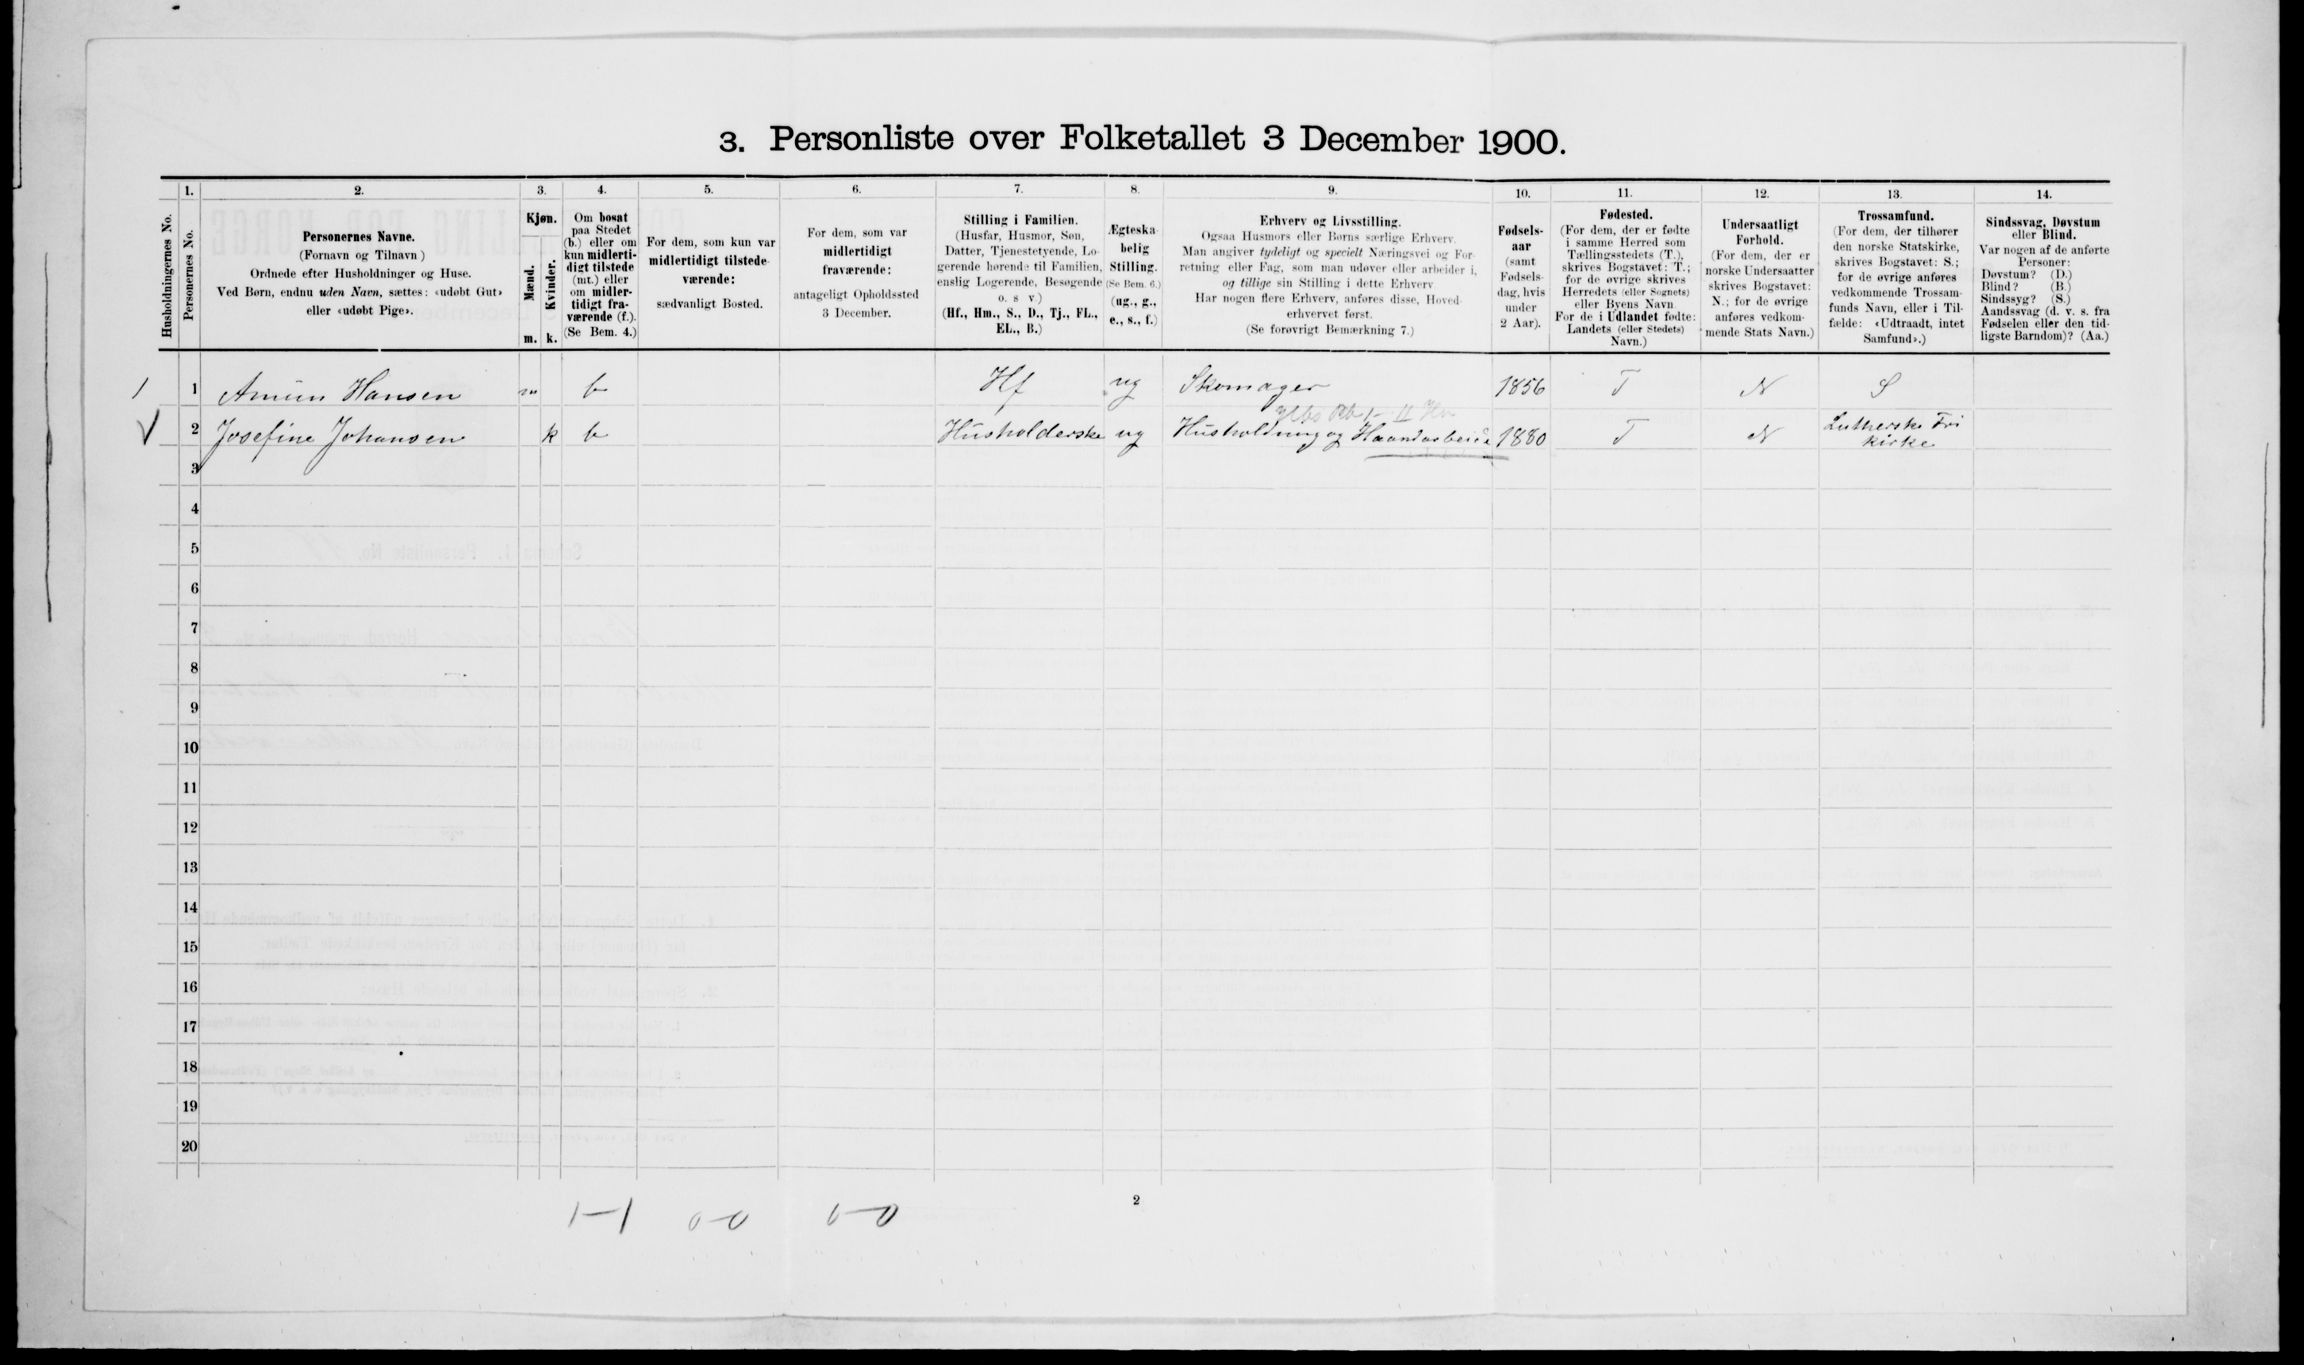 3. Personliste over Folketallet 3 December 1900.
1. 2. 3. 4. 5. 6. 7. 8. 9. 10. 11. 12. 13. 14.
Husholdningernes No.
Personernes No.
Personernes Navne.
(Fornavn og Tilnavn)
Ordnede efter Husholdninger og Huse.
Ved Børn, endnu uden Navn, sættes: «udøbt Gut»
eller «udøbt Pige».
Kjøn.
Mænd.
Kvinder.
m. k.
Om bosat
paa Stedet
(b.) eller om
kun midlerti-
digt tilstede
(mt.) eller
om midler-
tidigt fra-
værende (f.).
(Se Bem. 4.)
For dem, som kun var
midlertidigt tilstede-
værende:
sædvanligt Bosted.
For dem, som var
midlertidigt
fraværende:
antageligt Opholdssted
3 December.
Stilling i Familien.
(Husfar, Husmor, Søn,
Datter, Tjenestetyende, Lo-
gerende hørende til Familien,
enslig Logerende, Besøgende
o. s v.)
(Hf., Hm., S., D., Tj., FL.,
EL., B.)
Ægteska-
belig
Stilling.
(Se Bem. 6.)
(ug., g.,
e., s., f.)
Erhverv og Livsstilling.
Ogsaa Husmors eller Børns særlige Erhverv.
Man angiver tydeligt og specielt Næringsvei og For-
retning eller Fag, som man udøver eller arbeider i,
og tillige sin Stilling i dette Erhverv.
Har nogen flere Erhverv, anføres disse, Hoved-
erhvervet først.
(Se forøvrigt Bemærkning 7.)
Fødsels-
aar
(samt
Fødsels-
dag, hvis
under
2 Aar).
Fødested.
(For dem, der er fødte
i samme Herred som
Tællingsstedets (T.),
skrives Bogstavet: T.;
for de øvrige skrives
Herredets (eller Sognets)
eller Byens Navn
For de i Udlandet fødte:
Landets (eller Stedets)
Navn.)
Undersaatligt
Forhold.
(For dem, der er
norske Undersaatter
skrives Bogstavet:
N.; for de øvrige
anføres vedkom-
mende Stats Navn.)
Trossamfund.
(For dem, der tilhører
den norske Statskirke,
skrives Bogstavet: S.;
for de øvrige anføres
vedkommende Trossam-
funds Navn, eller i Til-
fælde: «Udtraadt, intet
Samfund».)
Sindssvag, Døvstum
eller Blind.
Var nogen af de anførte
Personer:
Døvstum? (D.)
Blind? (B.)
Sindssyg? (S.)
Aandssvag (d. v. s. fra
Fødselen eller den tid-
ligste Barndom)? (Aa.)
1 1 Hansen m b Hf ug Skomager 1856 T N S
2 Josefine Johansen k b Husholderske ug Husholdning og Haandarbeide 1880 T N Lutherske Fri
kirke
3
4
5
6
7
8
9
10
11
12
13
14
15
16
17
18
19
20
2
1-1 0-0 0-0